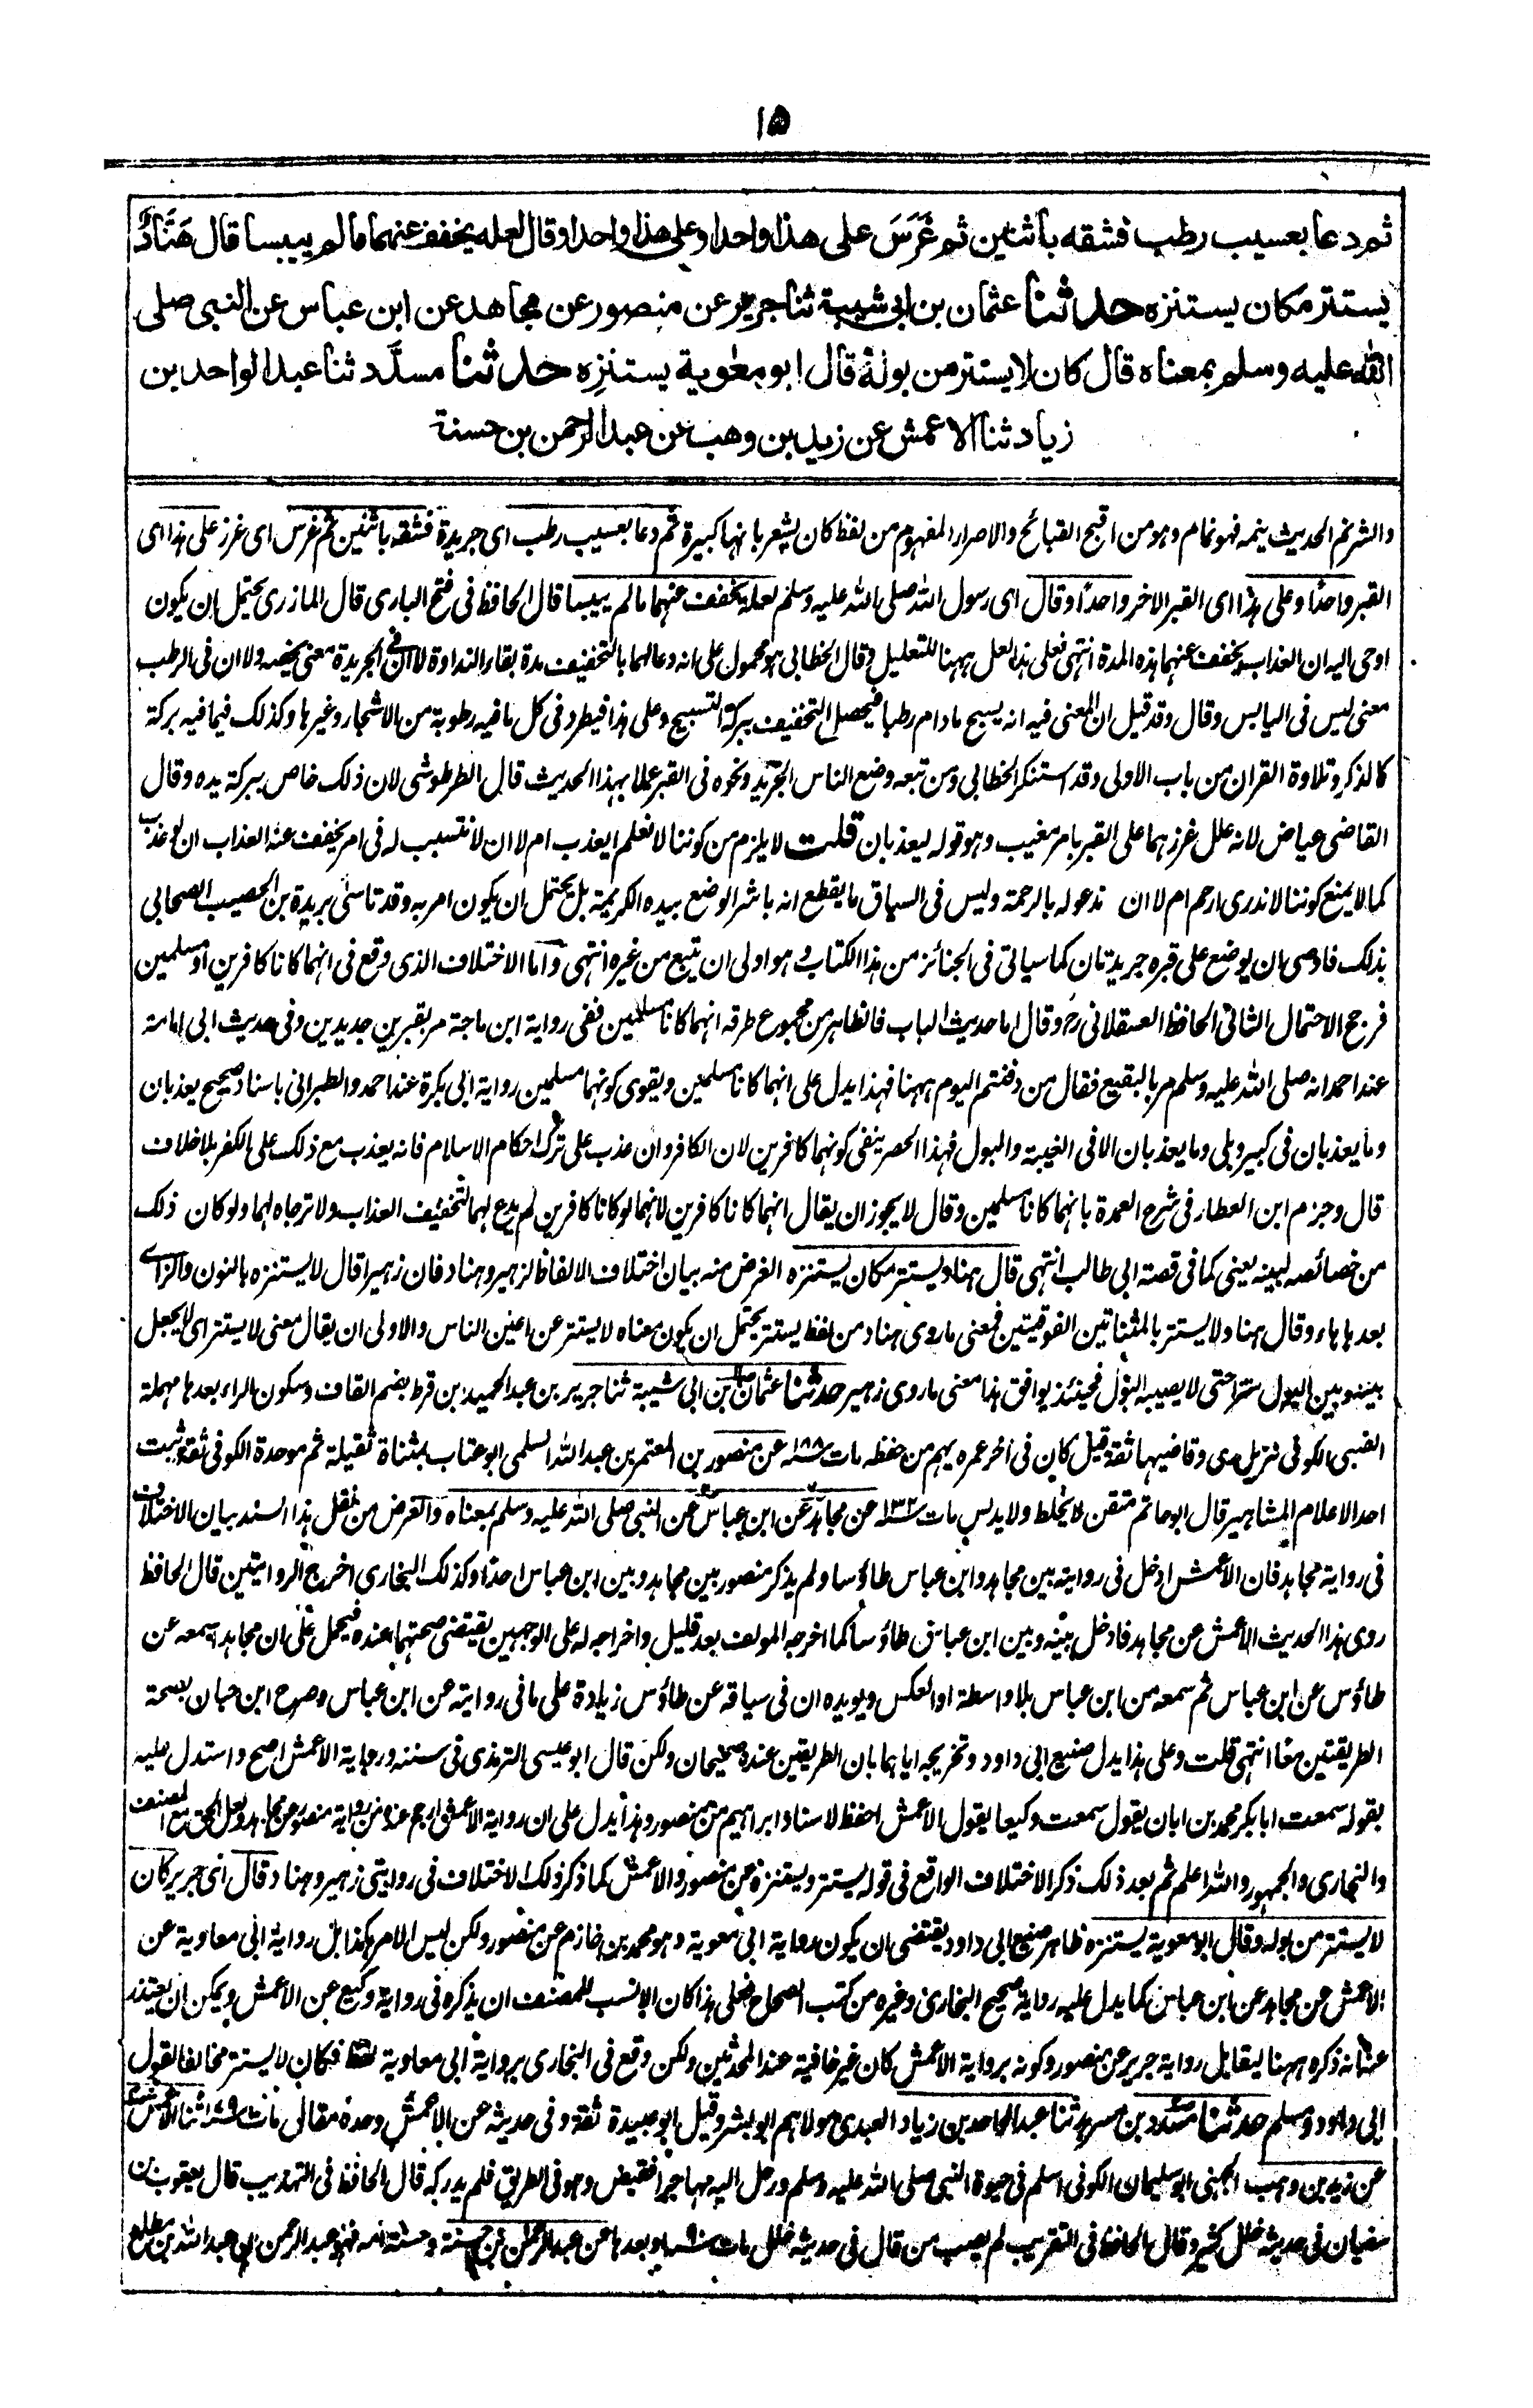 ١٥
ثم دعا بعسيب رطب فشقه باثنين ثم غَرَسَ على هذا واحدا وعلى هذا واحدا وقال لعله يخفف عنهما ما لم ييبسا قال هَنَّادٌ
يستتر مكان يستنزه حدثنا عثمان بن ابي شيبة ثنا جرير عن منصور عن مجاهد عن ابن عباس عن النبي صلى
الله عليه وسلم بمعناه قال كان لا يستتر من بوله قال ابو معوية يستنزه حدثنا مسدَّد ثنا عبد الواحد بن
زياد ثنا الاعمش عن زيد بن وهب عن عبد الرحمن بن حسنة
والشر نم الحديث ينمه فهو نمام وهو من اقبح القبائح والاصرار المفهوم من لفظ كان يشعر بانها كبيرة ثم دعا بعسيب رطب اى جريدة فشقه باثنين ثم غرس اى غرز على هذا اى
القبر واحدًا وعلى هذا اى القبر الاخر واحدًا وقال اى رسول الله صلى الله عليه وسلم لعله يخفف عنهما ما لم ييبسا قال الحافظ فى فتح البارى قال المازرى يحتمل ان يكون
اوحى اليه ان العذاب يخفف عنهما هذه المدة انتهى فعلى هذا لعل ههنا للتعليل وقال الخطابى هو محمول على انه دعا لهما بالتخفيف مدة بقاء النداوة لا ان فى الجريدة معنى يخصه ولا ان فى الرطب
معنى ليس فى اليابس وقال وقد قيل ان المعنى فيه انه يسبح مادام رطبا فيحصل التخفيف ببركة التسبيح وعلى هذا فيطرد فى كل ما فيه رطوبة من الاشجار وغيرها وكذلك فيما فيه بركة
كالذكر وتلاوة القران من باب الاولى وقد استنكر الخطابى ومن تبعه وضع الناس الجريد ونحوه فى القبر عملا بهذا الحديث قال الطرطوشى لان ذلك خاص ببركة يده وقال
القاضى عياض لانه علل غرزهما على القبر بامر مغيب وهو قوله ليعذبان قلت لا يلزم من كوننا لا نعلم ايعذب ام لا ان لا نتسبب له فى امر يخفف عنه العذاب ان لو عذب
كما لا يمنع كوننا لا ندرى ارحم ام لا ان ندعو له بالرحمة وليس فى السياق ما يقطع انه باشر الوضع بيده الكريمة بل يحتمل ان يكون امر به وقد تاسى بريدة بن الحصيب الصحابى
بذلك فاوصى ان يوضع على قبره جريدتان كما سياتى فى الجنائز من هذا الكتاب وهو اولى ان يتبع من غيره انتهى واما الاختلاف الذى وقع فى انهما كانا كافرين او مسلمين
فرجح الاحتمال الثانى الحافظ العسقلانى رح وقال اما حديث الباب فالظاهر من مجموع طرقه انهما كانا مسلمين ففى رواية ابن ماجة مر بقبرين جديدين وفى حديث ابى امامة
عند احمد انه صلى الله عليه وسلم مر بالبقيع فقال من دفنتم اليوم ههنا فهذا يدل على انهما كانا مسلمين ويقوى كونهما مسلمين رواية ابى بكرة عند احمد والطبرانى باسناد صحيح يعذبان
وما يعذبان فى كبير وبلى وما يعذبان الا فى الغيبة والبول فهذا الحصر ينفى كونهما كافرين لان الكافر وان عذب على ترك احكام الاسلام فانه يعذب مع ذلك على الكفر بلا خلاف
قال وجزم ابن العطار فى شرح العمدة بانهما كانا مسلمين وقال لا يجوز ان يقال انهما كانا كافرين لانهما لو كانا كافرين لم يدع لهما بتخفيف العذاب ولا ترجاه لهما ولو كان ذلك
من خصائصه لبينه يعنى كما فى قصة ابى طالب انتهى قال هناد يستتر مكان يستنزه الغرض منه بيان اختلاف الالفاظ لزهير وهناد فان زهيرا قال لا يستنزه بالنون والزاے
بعدها هاء وقال هناد لا يستتر بالمثناتين الفوقيتين فمعنى ما روى هناد من لفظ يستتر يحتمل ان يكون معناه لا يستتر عن اعين الناس والاولى ان يقال معنى لا يستتر اى لا يجعل
بينه وبين البول سترا حتى لا يصيبه البول فحينئذ يوافق هذا معنى ما روى زهير حدثنا عثمان بن ابى شيبة ثنا جرير بن عبد الحميد بن قرط بضم القاف وسكون الراء بعدها مهملة
الضبى الكوفى نزيل رى وقاضيها ثقة وقيل كان فى اخر عمره يهم من حفظه مات ١٨٨ﻫ عن منصور بن المعتمر بن عبد الله السلمى ابو عتاب بمثناة ثقيلة ثم موحدة الكوفى ثقة وثبت
احد الاعلام المشاهير قال ابو حاتم متقن لا يخلط ولا يدلس مات ١٣٢ﻫ عن مجاهد عن ابن عباس عن النبى صلى الله عليه وسلم بمعناه والغرض من نقل هذا السند بيان الاختلاف
فى رواية مجاهد فان الاعمش ادخل فى روايته بين مجاهد وابن عباس طاؤسا ولم يذكر منصور بين مجاهد وبين ابن عباس احدًا وكذلك البخارى اخرج الروايتين قال الحافظ
روى هذا الحديث الاعمش عن مجاهد فادخل بينه وبين ابن عباس طاؤسا كما اخرجه المولف بعد قليل واخراجه له على الوجهين يقتضى صحتهما عنده فيحمل على ان مجاهدا سمعه عن
طاؤس عن ابن عباس ثم سمعه من ابن عباس بلا واسطة او العكس ويويده ان فى سياقه عن طاؤس زيادة على ما فى روايته عن ابن عباس وصرح ابن حبان بصحة
الطريقتين معًا انتهى قلت وعلى هذا يدل صنيع ابى داود وتخريجه اياهما بان الطريقين عنده صحيحان ولكن قال ابو عيسى الترمذى فى سننه ورواية الاعمش اصح واستدل عليه
بقوله سمعت ابا بكر محمد بن ابان يقول سمعت وكيعا يقول الاعمش احفظ لاسناد ابراهيم من منصور وهذا يدل على ان رواية الاعمش ارجح عنده من رواية منصور عن مجاهد ولعل الحق مع المصنف
والبخارى والجمهور والله اعلم ثم بعد ذلك ذكر الاختلاف الواقع فى قوله يستتر ويستنزه عن منصور والاعمش كما ذكر ذلك الاختلاف فى روايتى زهير وهناد وقال اى جرير كان
لا يستتر من بوله وقال ابو معوية يستنزه ظاهر صنيع ابى داود يقتضى ان يكون رواية ابى معوية وهو محمد بن خازم عن منصور ولكن ليس الامر هكذا بل رواية ابى معاوية عن
الاعمش عن مجاهد عن ابن عباس كما يدل عليه رواية صحيح البخارى وغيره من كتب الصحاح فعلى هذا كان الانسب للمصنف ان يذكره فى رواية وكيع عن الاعمش ويمكن ان يعتذر
عنه انه ذكره ههنا ليقابل رواية جرير عن منصور وكونه برواية الاعمش كان غير خافية عند المحدثين ولكن وقع فى البخارى برواية ابى معاوية لفظ فكان لا يستتر مخالفا لقول
ابى داود ومسلم حدثنا مسدد بن مسرهد ثنا عبد الواحد بن زياد العبدى مولاهم ابو بشر وقيل ابو عبيدة ثقة وفى حديثه عن الاعمش وحده مقال مات ١٧٩ﻫ ثنا الاعمش
عن زيد بن وهب الجهنى ابو سليمان الكوفى اسلم فى حيوة النبى صلى الله عليه وسلم ورحل اليه مهاجرا فقبض وهو فى الطريق فلم يدركه قال الحافظ فى التهذيب قال يعقوب بن
سفيان فى حديثه خلل كثير وقال الحافظ فى التقريب لم يصب من قال فى حديثه خلل مات ٩٠ﻫ او بعدها عن عبد الرحمن بن حسنة وحسنة امه فهو عبد الرحمن بن عبد الله بن مطاع